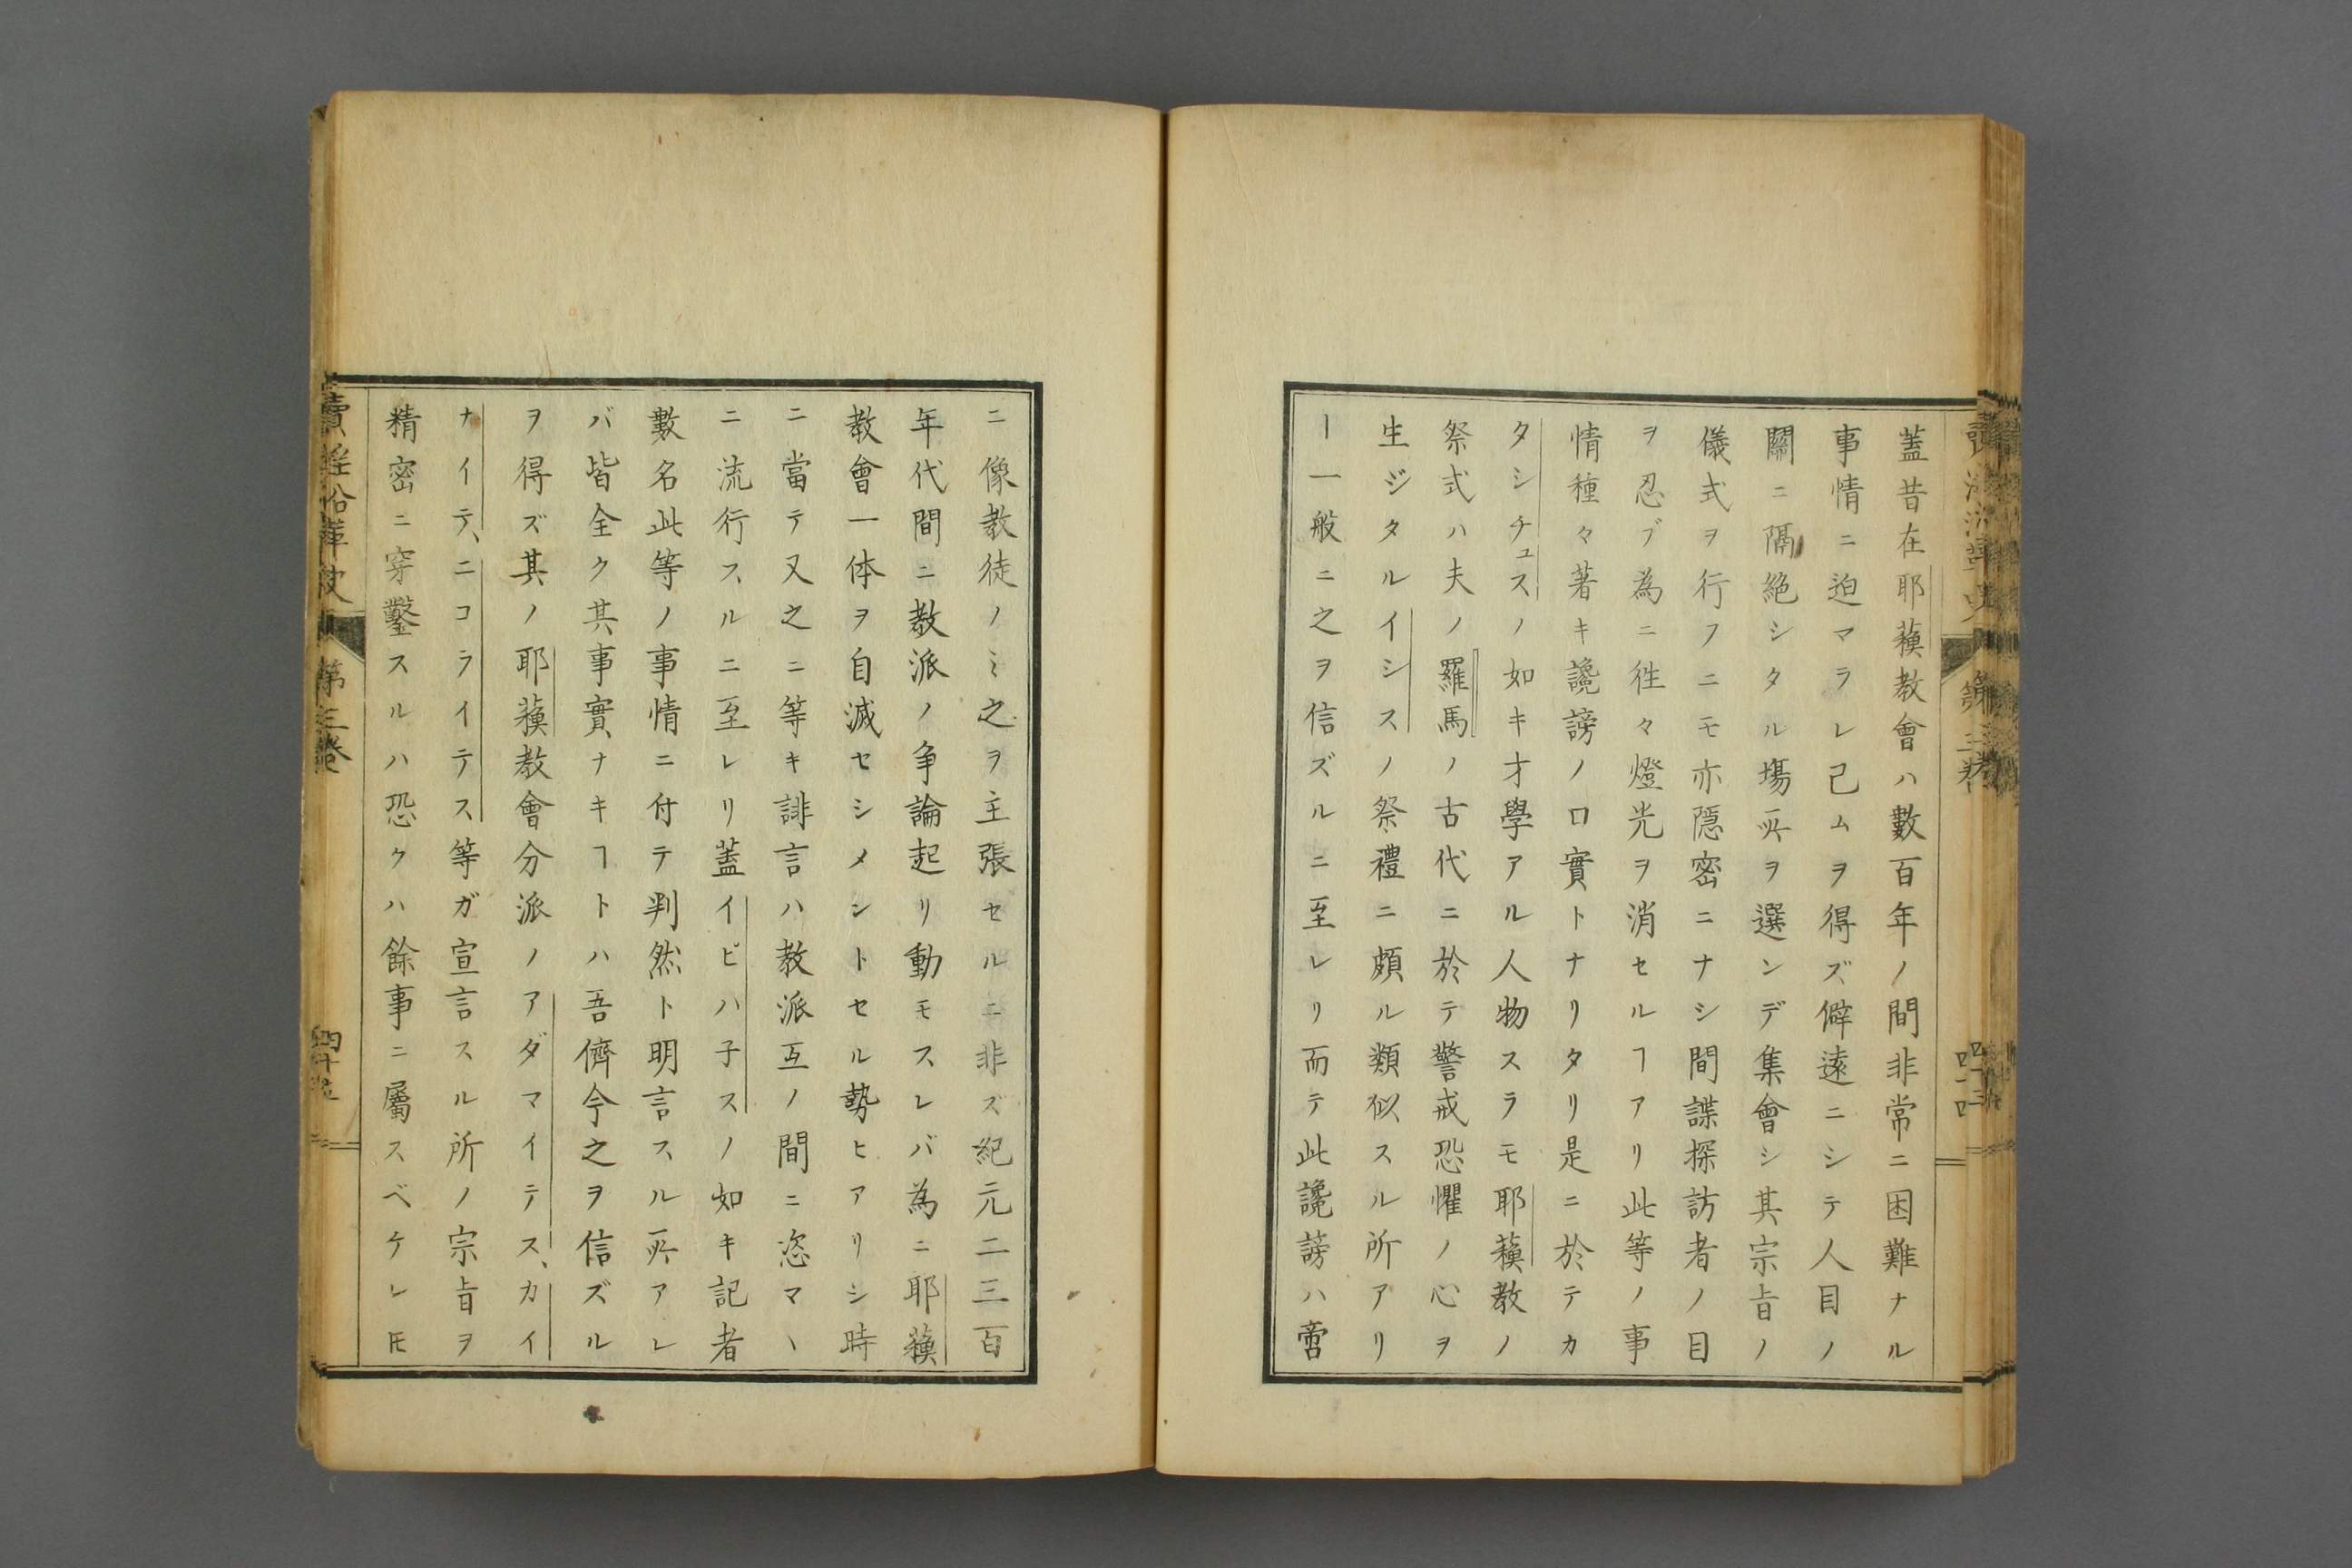 蓋昔在耶蘓教會ハ數百年ノ間非常ニ困難ナル
事情ニ迫マラレ己ムヲ得ズ僻遠ニシテ人目ノ
關ニ隔絶シタル塲所ヲ選ンデ集會シ其宗旨ノ
儀式ヲ行フニモ亦隠密ニナシ間諜探訪者ノ目
ヲ忍ブ為ニ徃々燈光ヲ消セルヿアリ此等ノ事
情種々著キ讒謗ノ口實トナリタリ是ニ於テカ
タシチュスノ如キ才學アル人物スラモ耶蘓教ノ
祭式ハ夫ノ羅馬ノ古代ニ於テ警戒恐懼ノ心ヲ
生ジタルイシスノ祭禮ニ頗ル類似スル所アリ
ー一般ニ之ヲ信ズルニ至レリ而テ此讒謗ハ啻
ニ像教徒ノミ之ヲ主張セルニ非ズ紀元二三百
年代間ニ教派ノ争論起リ動モスレバ為ニ耶蘓
教會一体ヲ自滅セシメントセル勢ヒアリシ時
ニ當テ又之ニ等キ誹言ハ教派互ノ間ニ恣マヽ
ニ流行スルニ至レリ蓋イピハ子スノ如キ記者
數名此等ノ事情ニ付テ判然ト明言スル所アレ
バ皆全ク其事實ナキヿトハ吾儕今之ヲ信ズル
ヲ得ズ其ノ耶蘓教會分派ノアダマイテス、カイ
ナイテ、ニコライテス等ガ宣言スル所ノ宗旨ヲ
精密ニ穿鑿スルハ恐クハ餘事ニ屬スベケレ𪜈
賣淫沿革史 第三巻